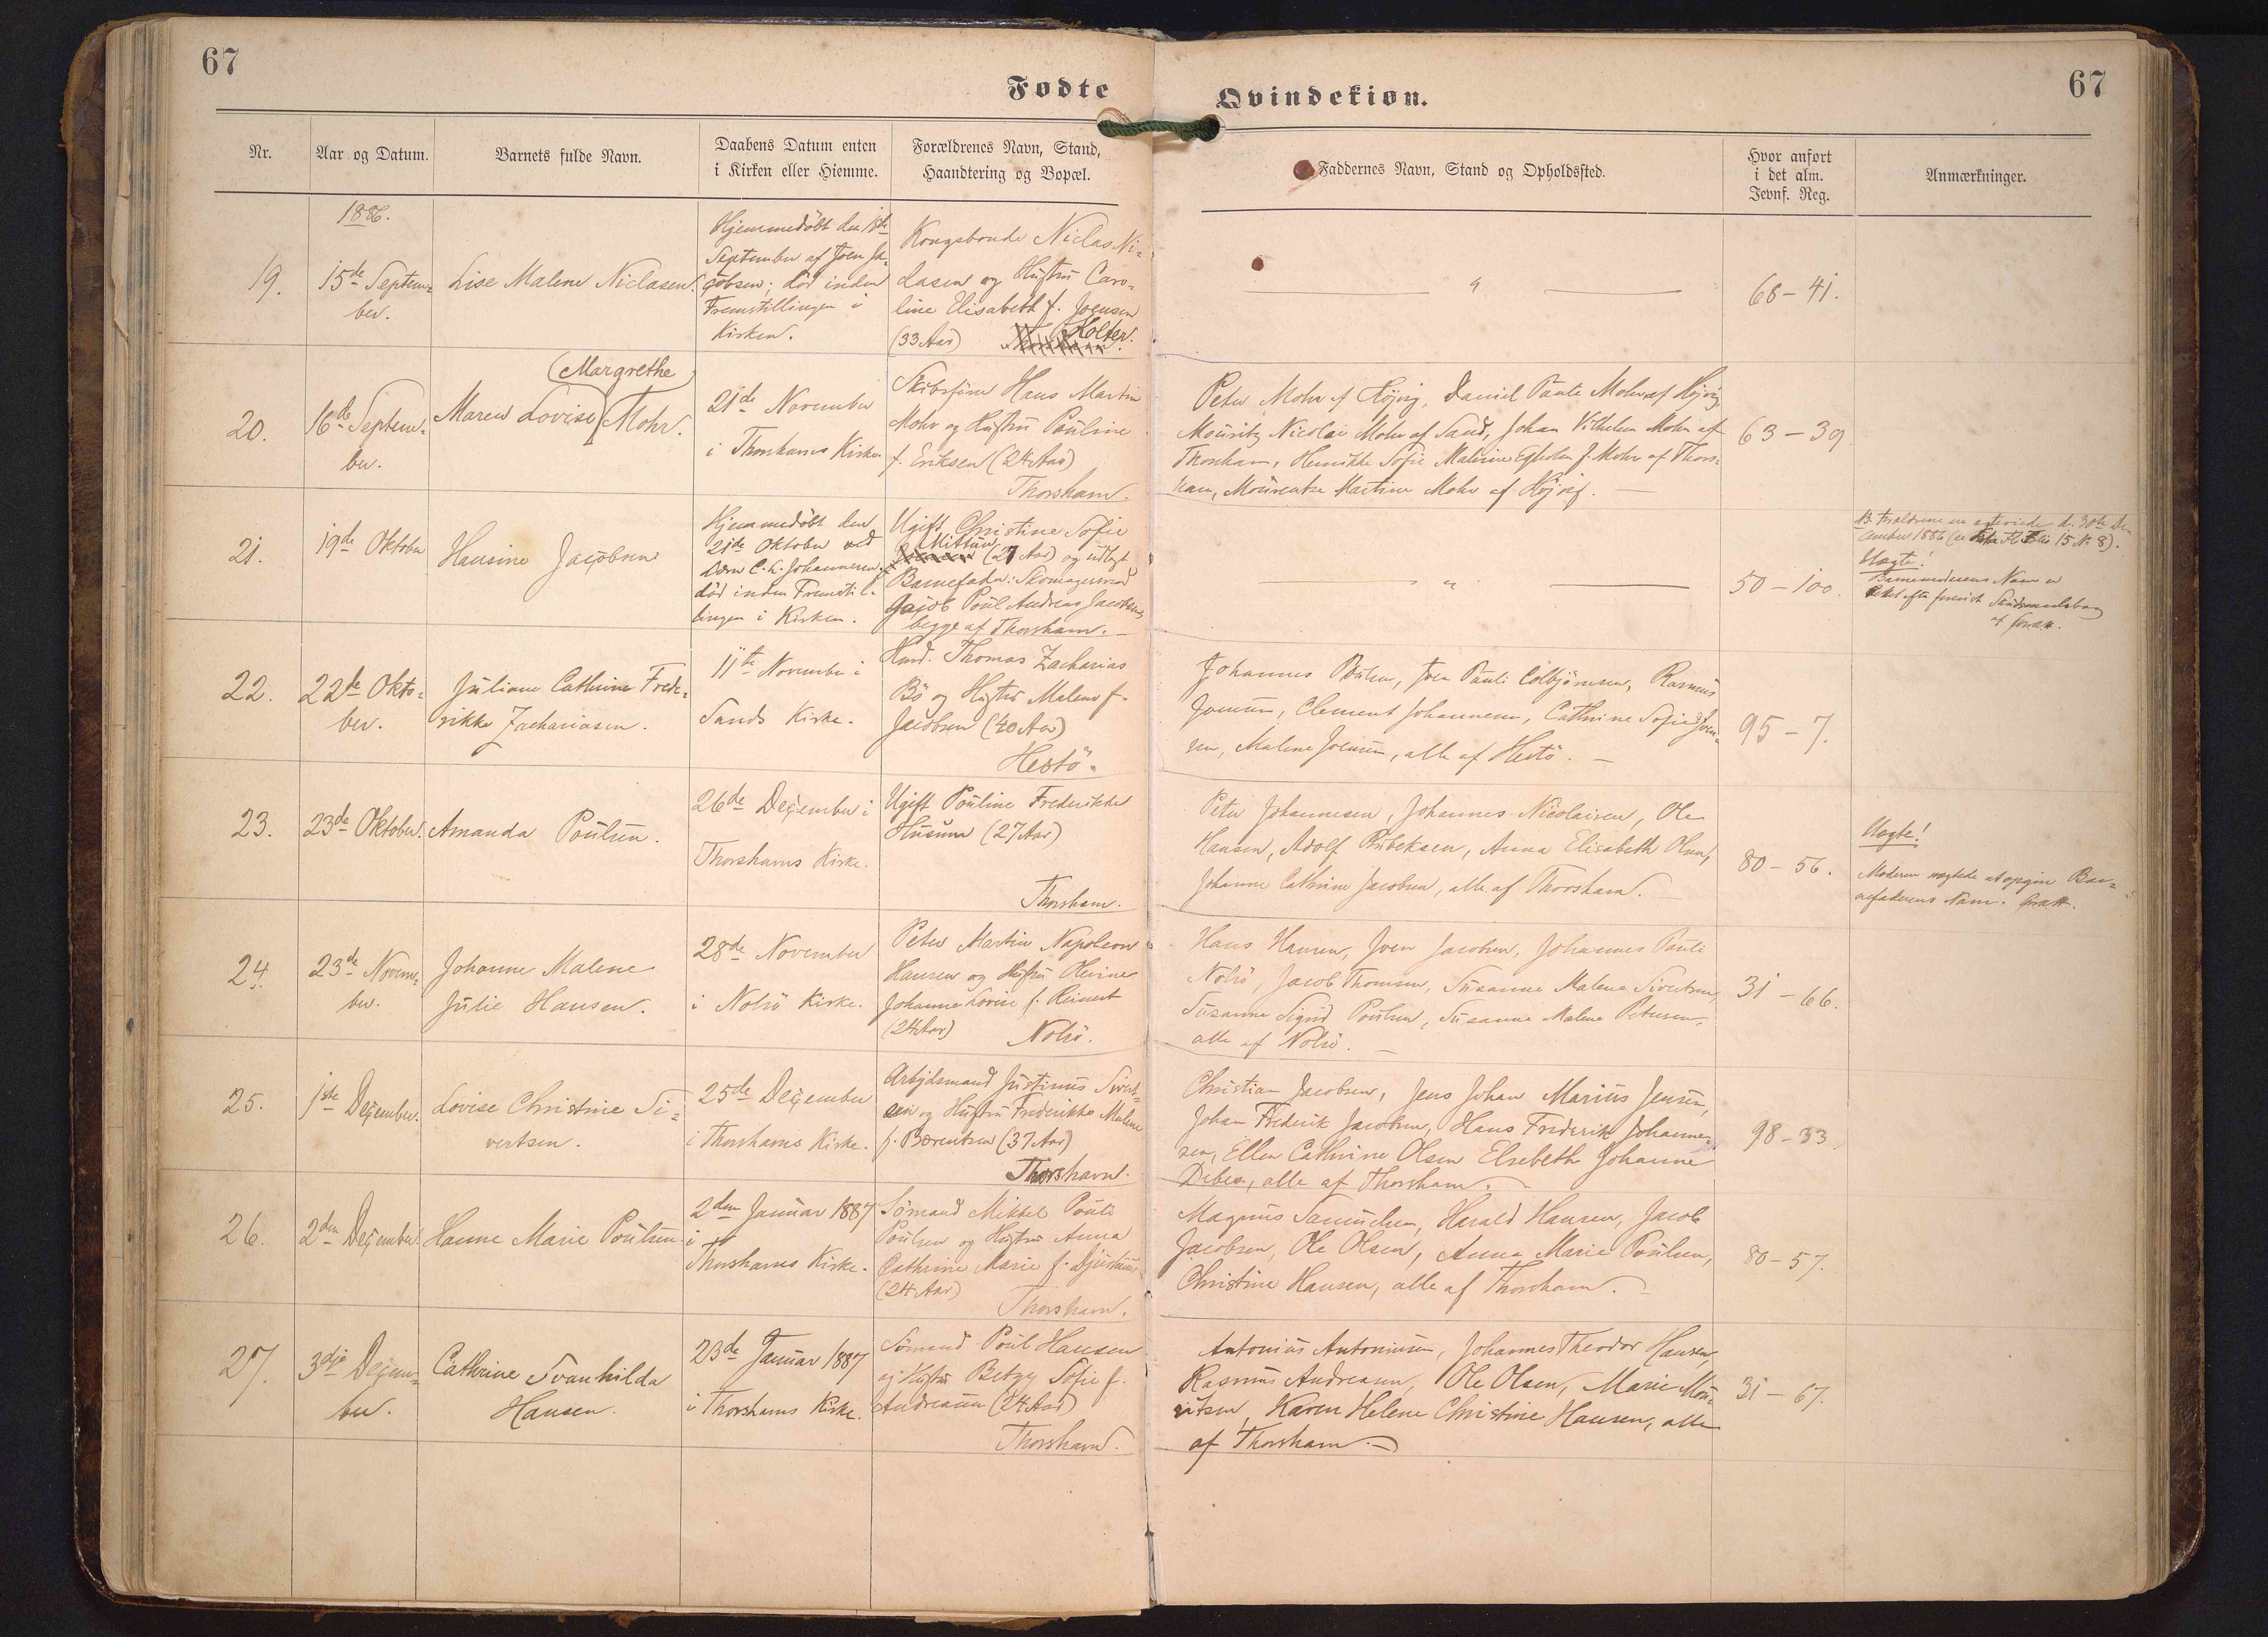 67
67
Fødte
Qvindekiøn.
Nr.
Aar og Datum.
Barnets fulde Navn.
Daabens Datum enten
i Kirken eller Hiemme.
Forældrenes Navn, Stand,
Haandtering og Bopæl.
Faddernes Navn, Stand og Opholdssted.
Hvor anført
i det alm.
Jevnf. Reg.
Anmærkninger.
1886.
19.
15de Septem-
ber.
Lise Malene Niclasen.
Hjemmedöbt den 18de
September af Joen Ja-
cobsen; död inden
Fremstillingen i
Kirken.
Kongsbonde Niclas Ni-
clasen og Hustru Caro-
line Elisabeth f. Joensen
(33 Aar) Kolter.
"
68 – 41.
20.
16de Septem-
ber.
(Margrethe)
Maren Lovise Mohr.
21de November
i Thorshavns Kirke.
Skibsförer Hans Martin
Mohr og Hustru Pauline
f. Eriksen (24 Aar)
Thorshavn.
Peter Mohr af Höjvig, Daniel Paule Mohr af Höjvig,
Mouritz Nicolai Mohr af Sand, Johan Vilhelm Mohr af
Thorshavn, Henrikke Sofie Malene Egholm f. Mohr af Thors-
havn, Mourentze Martine Mohr af Höjvig. –
63 – 39
21.
19de Oktober
Hansine Jacobsen
Hjemmedöbt den
21de Oktober ved
C. L. Johannesen;
död inden Fremstil-
lingen i Kirken.
Ugift Christine Sofie
(27 Aar) og udlagt
Barnefader: Skomagersvend
Jacob Poul Andreas Jacobsen,
begge af Thorshavn. –
"
50 – 100.
Forældrene ere ægteviede d. 30te De-
cember 1886 (se Folio 15 Nr. 8).
Uægte!
Barnemoderens Navn er
rettet efter
22.
22de Okto-
ber.
Juliane Cathrine Frede-
rikke Zachariasen.
11te November i
Sands Kirke.
Husd. Thomas Zacharias
Bö og Hustru Malene f.
Jacobsen (40 Aar)
Hestö.
Johannes Poulsen, Joen Pauli Colbjörnsen, Rasmus
Joensen, Clement Johannesen, Cathrine Sofie Joen-
sen, Malene Joensen, alle af Hestö. –
95 – 7.
23.
23de Oktober.
Amanda Poulsen.
26de December i
Thorshavns Kirke.
Ugift Pouline Frederikke
Husum (27 Aar)
Thorshavn.
Peter Johannesen, Johannes Nicolaisen, Ole
Hansen, Adolf Rubeksen, Anna Elisabeth Olsen,
Johanne Cathrine Jacobsen, alle af Thorshavn.
80 – 56.
Uægte!
Moderen nægtede at opgive Bar-
nefaderens Navn.
24.
23de Novem-
ber.
Johanne Malene
Julie Hansen.
28de November
i Nolsö Kirke.
Peter Martin Napoleon
Hansen og Hustru Olevine
Johanne Lovise f. Reinert
(24 Aar) Nolsö.
Hans Hansen, Joen Jacobsen, Johannes Pauli
Nolsö, Jacob Thomsen, Susanne Malene Sivertsen,
Susanne Sigrid Poulsen, Susanne Malene Petersen,
alle af Nolsö. –
31 – 66.
25.
1ste December.
Lovise Christine Si-
vertsen.
25de December
i Thorshavns Kirke.
Arbejdsmand Justinus Sivert-
sen og Hustru Frederikke Malene
f. Berentsen (37 Aar)
Thorshavn.
Christian Jacobsen, Jens Johan Marius Jensen,
Johan Frederik Jacobsen, Hans Frederik Johanne-
sen, Ellen Cathrine Olsen Elsebeth Johanne
Debes, alle af Thorshavn.
98 – 33
26.
2den December.
Hanne Marie Poulsen
2den Januar 1887
i
Thorshavns Kirke.
Sömand Mikkel Pouli
Poulsen og Hustru Anna
Cathrine Marie f. Djurhuus
(24 Aar)
Thorshavn.
Magnus Samuelsen, Harald Hansen, Jacob
Jacobsen, Ole Olsen, Anna Marie Poulsen,
Christine Hansen, alle af Thorshavn. –
80 – 57.
27.
3die Decem-
ber.
Cathrine Svanhilda
Hansen.
23de Januar 1887
i Thorshavns Kirke.
Sömand Poul Hansen
og Hustru Betzy Sofie f.
Andreasen (24 Aar)
Thorshavn.
Antonius Antoniussen, Johannes Theodor Hansen,
Rasmus Andreasen, Ole Olsen, Marie Mou-
ritsen, Karen Helene Christine Hansen, alle
af Thorshavn. –
31 – 67.